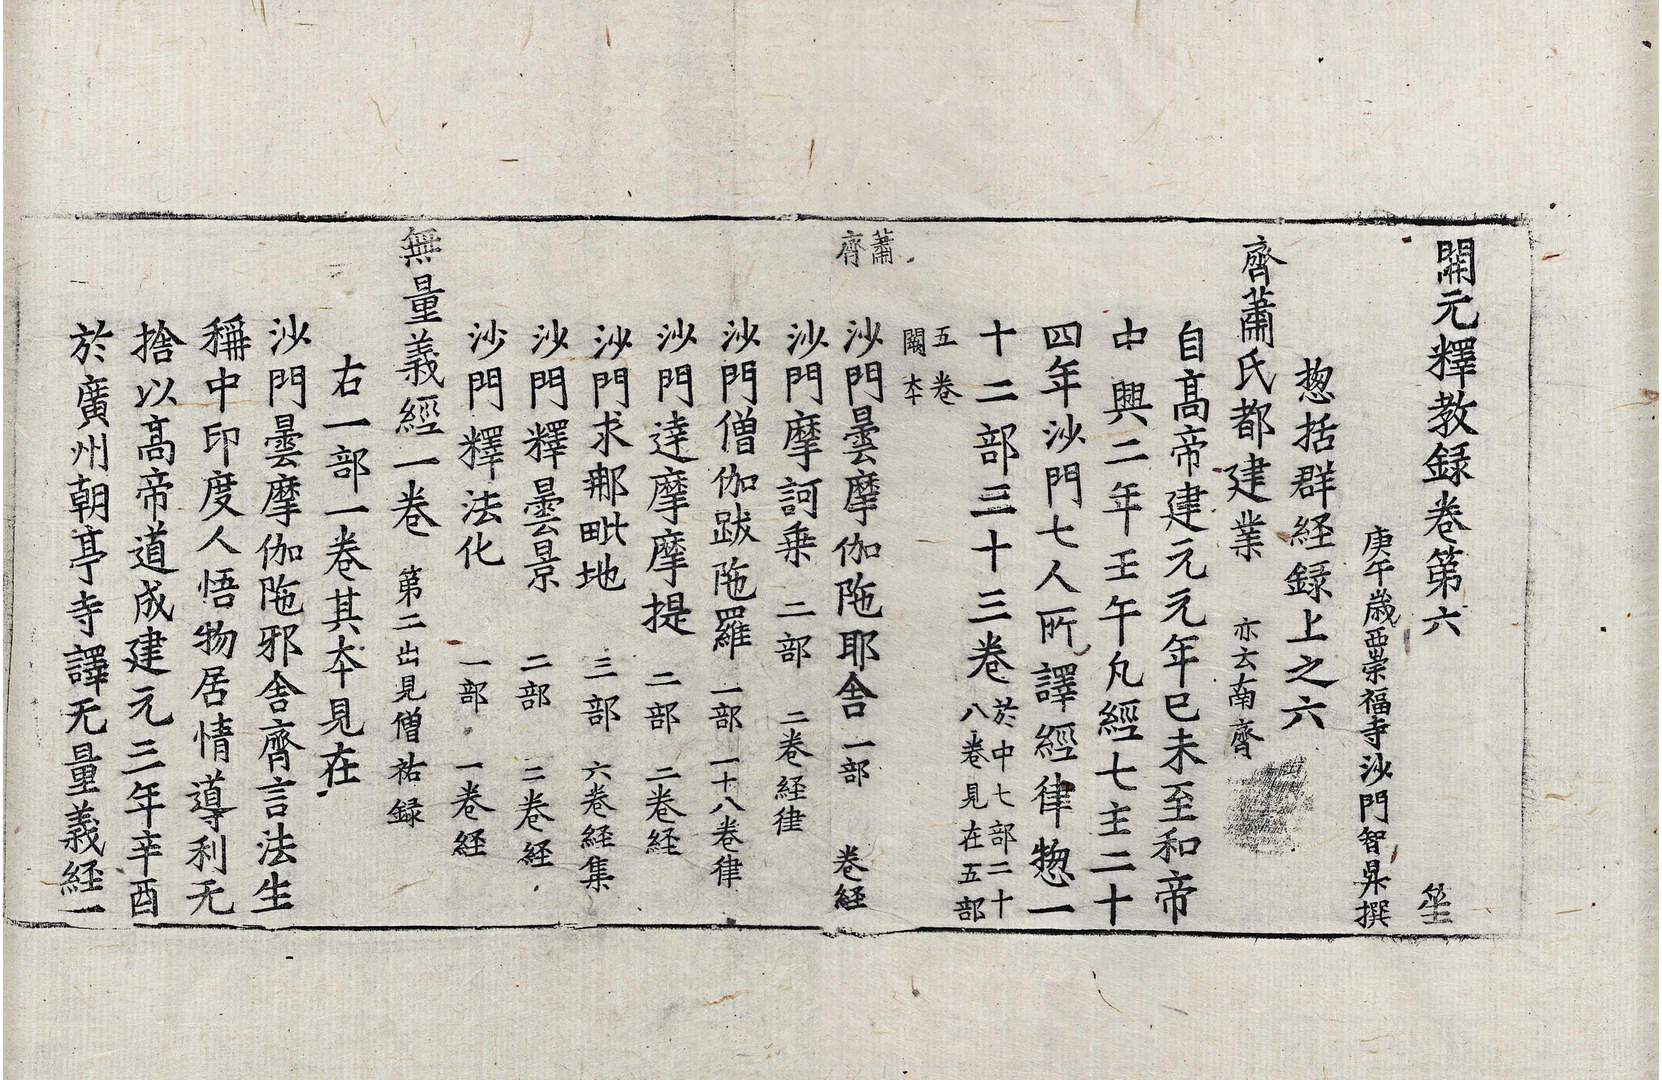 開元釋教録卷第六 㘴
庚午歲西崇福寺沙門智昇撰
惣括群経録上之六
齊蕭氏都建業 亦云南齊
自髙帝建元元年巳未至和帝
中興二年壬午凢經七主二十
四年沙門七人所譯經律惣一
十二部三十三卷 於中七部二十
八卷見在五部
五卷
闕本
蕭
齊
沙門曇摩伽陁耶舍 一部 卷経
沙門摩訶乗 二部 二卷経律
沙門僧伽跋陁羅 一部 一十八卷律
沙門達摩摩提 二部 二卷経
沙門求那毗地 三部 六卷経集
沙門釋曇景 二部 二卷経
沙門釋法化 一部 一卷経
無量義經一卷 第二出見僧祐録
右一部一卷其夲見在
沙門曇摩伽陁邪舍齊言法生
稱中印度人悟物居情導利无
捨以髙帝道成建元三年辛酉
於廣州朝亭寺譯无量義経一